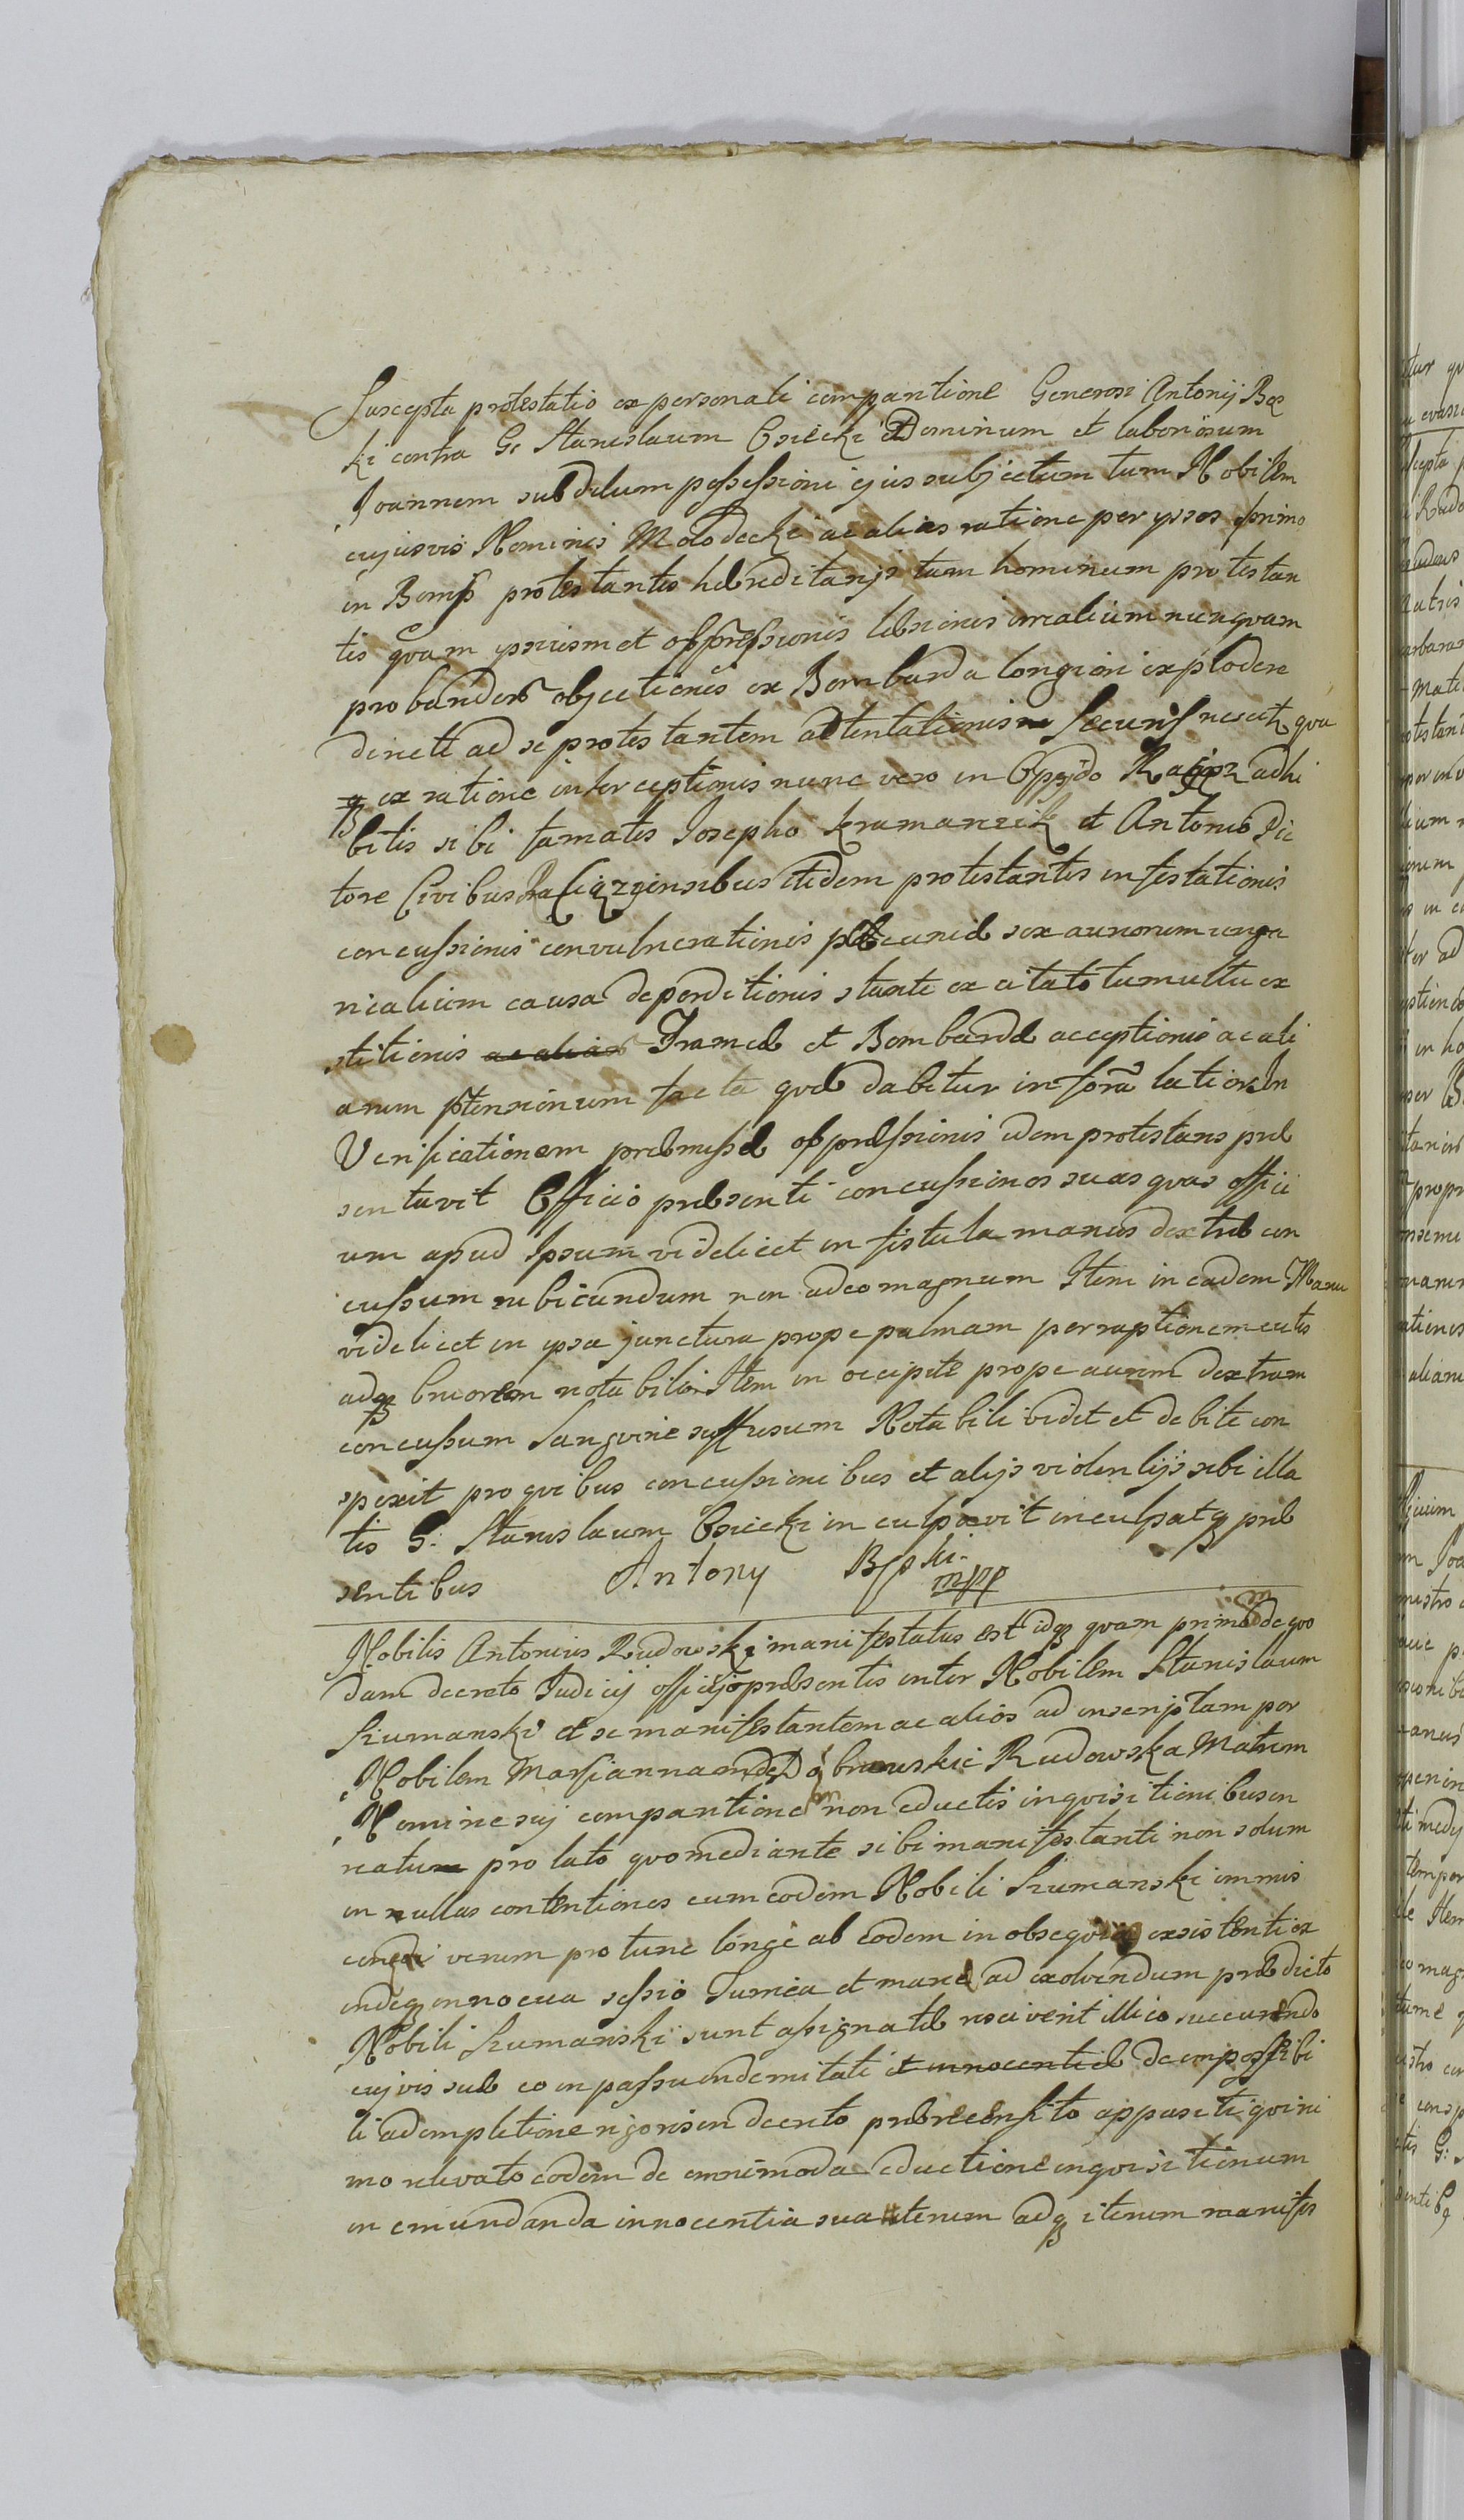 Suscepta protestatio ex personali comparitione Generosi Antonij
ki contra G: Stanislaum Osiecki Dominum et laboriosum
Joannem subditum possessioni ejus subjectum tum Nobilem
cujusvis Nominis Mołodecki ac alios ratione per ipsos primo
in Bonis protestantis hæreditarijs tam hominum protestan
tis quam ipsiusmet oppressionis læsionis irrealium nunquam
probandor objectionis ex Bombarda longiori explodere
directe ad se protestantem attentationis Securis
ex ratione interceptionis nunc vero in Oppido adhi
bitis sibi famatis Josepho Kramarzik et Antonio Pic
tore Civibus itidem protestantis infestationis
concussionis convulnerationis pæcuniæ sex aureorum unga
ricalium causa deperditionis stante excitato tumultu ex
stitionis ac alias Frameæ et Bombardæ acceptionis ac ali
arum ptensionum facta quæ dabitur in fora latior In
Verificationem præmissæ oppræssionis idem protestans præ
sentavit Officio præsenti concussiones suas quas offici
um apud Ipsum videlicet in fistula manus dextræ con
cussum rubicundum non adeo magnum Item in eadem Manu
videlicet in ipsa junctura prope palmam perraptionem cutis
adq cruorem notabiliter Item in occipite prope aurem dextram
concussum Sangvine suffusum Notabili vidit et debite con
spexit pro quibus concussionibus et alijs violentijs sibi illa
tis G: Stanislaum Osiecki inculpavit inculpatq præ
sentibus Antony mpp
Nobilis Antonius Rudowski manifestatus est idq quam primum de quo
dam decreto Judicij officijq præsentis inter Nobilem Stanislaum
Szumanski et se manifestantem ac alios ad inscriptam per
Nobilem Mariannam de Dąbrowskie Rudowska Matrem
Nomine sui comparitione non eductis inquisitionibus
natum pro lato quo mediante sibi manifestanti non solum
in nullas contentiones cum eodem Nobili Szumanski immis
cendi verum pro tunc longe ab eodem in obsequio exsistenti ex
indeq innocua sessio Turrica et marcæ ad exolvendum prædicto
Nobili Szumanski sunt assignatæ rescivent illico succurendo
cujvis sub eo in passu indemnitati et innocentiæ de impossibi
li adempletione rigoris in decreto præreensito appasiti quini
mo relevato eodem de omnimoda eductione inquisitionum
in emundanda innocentia sua iterum adq iterum manifes